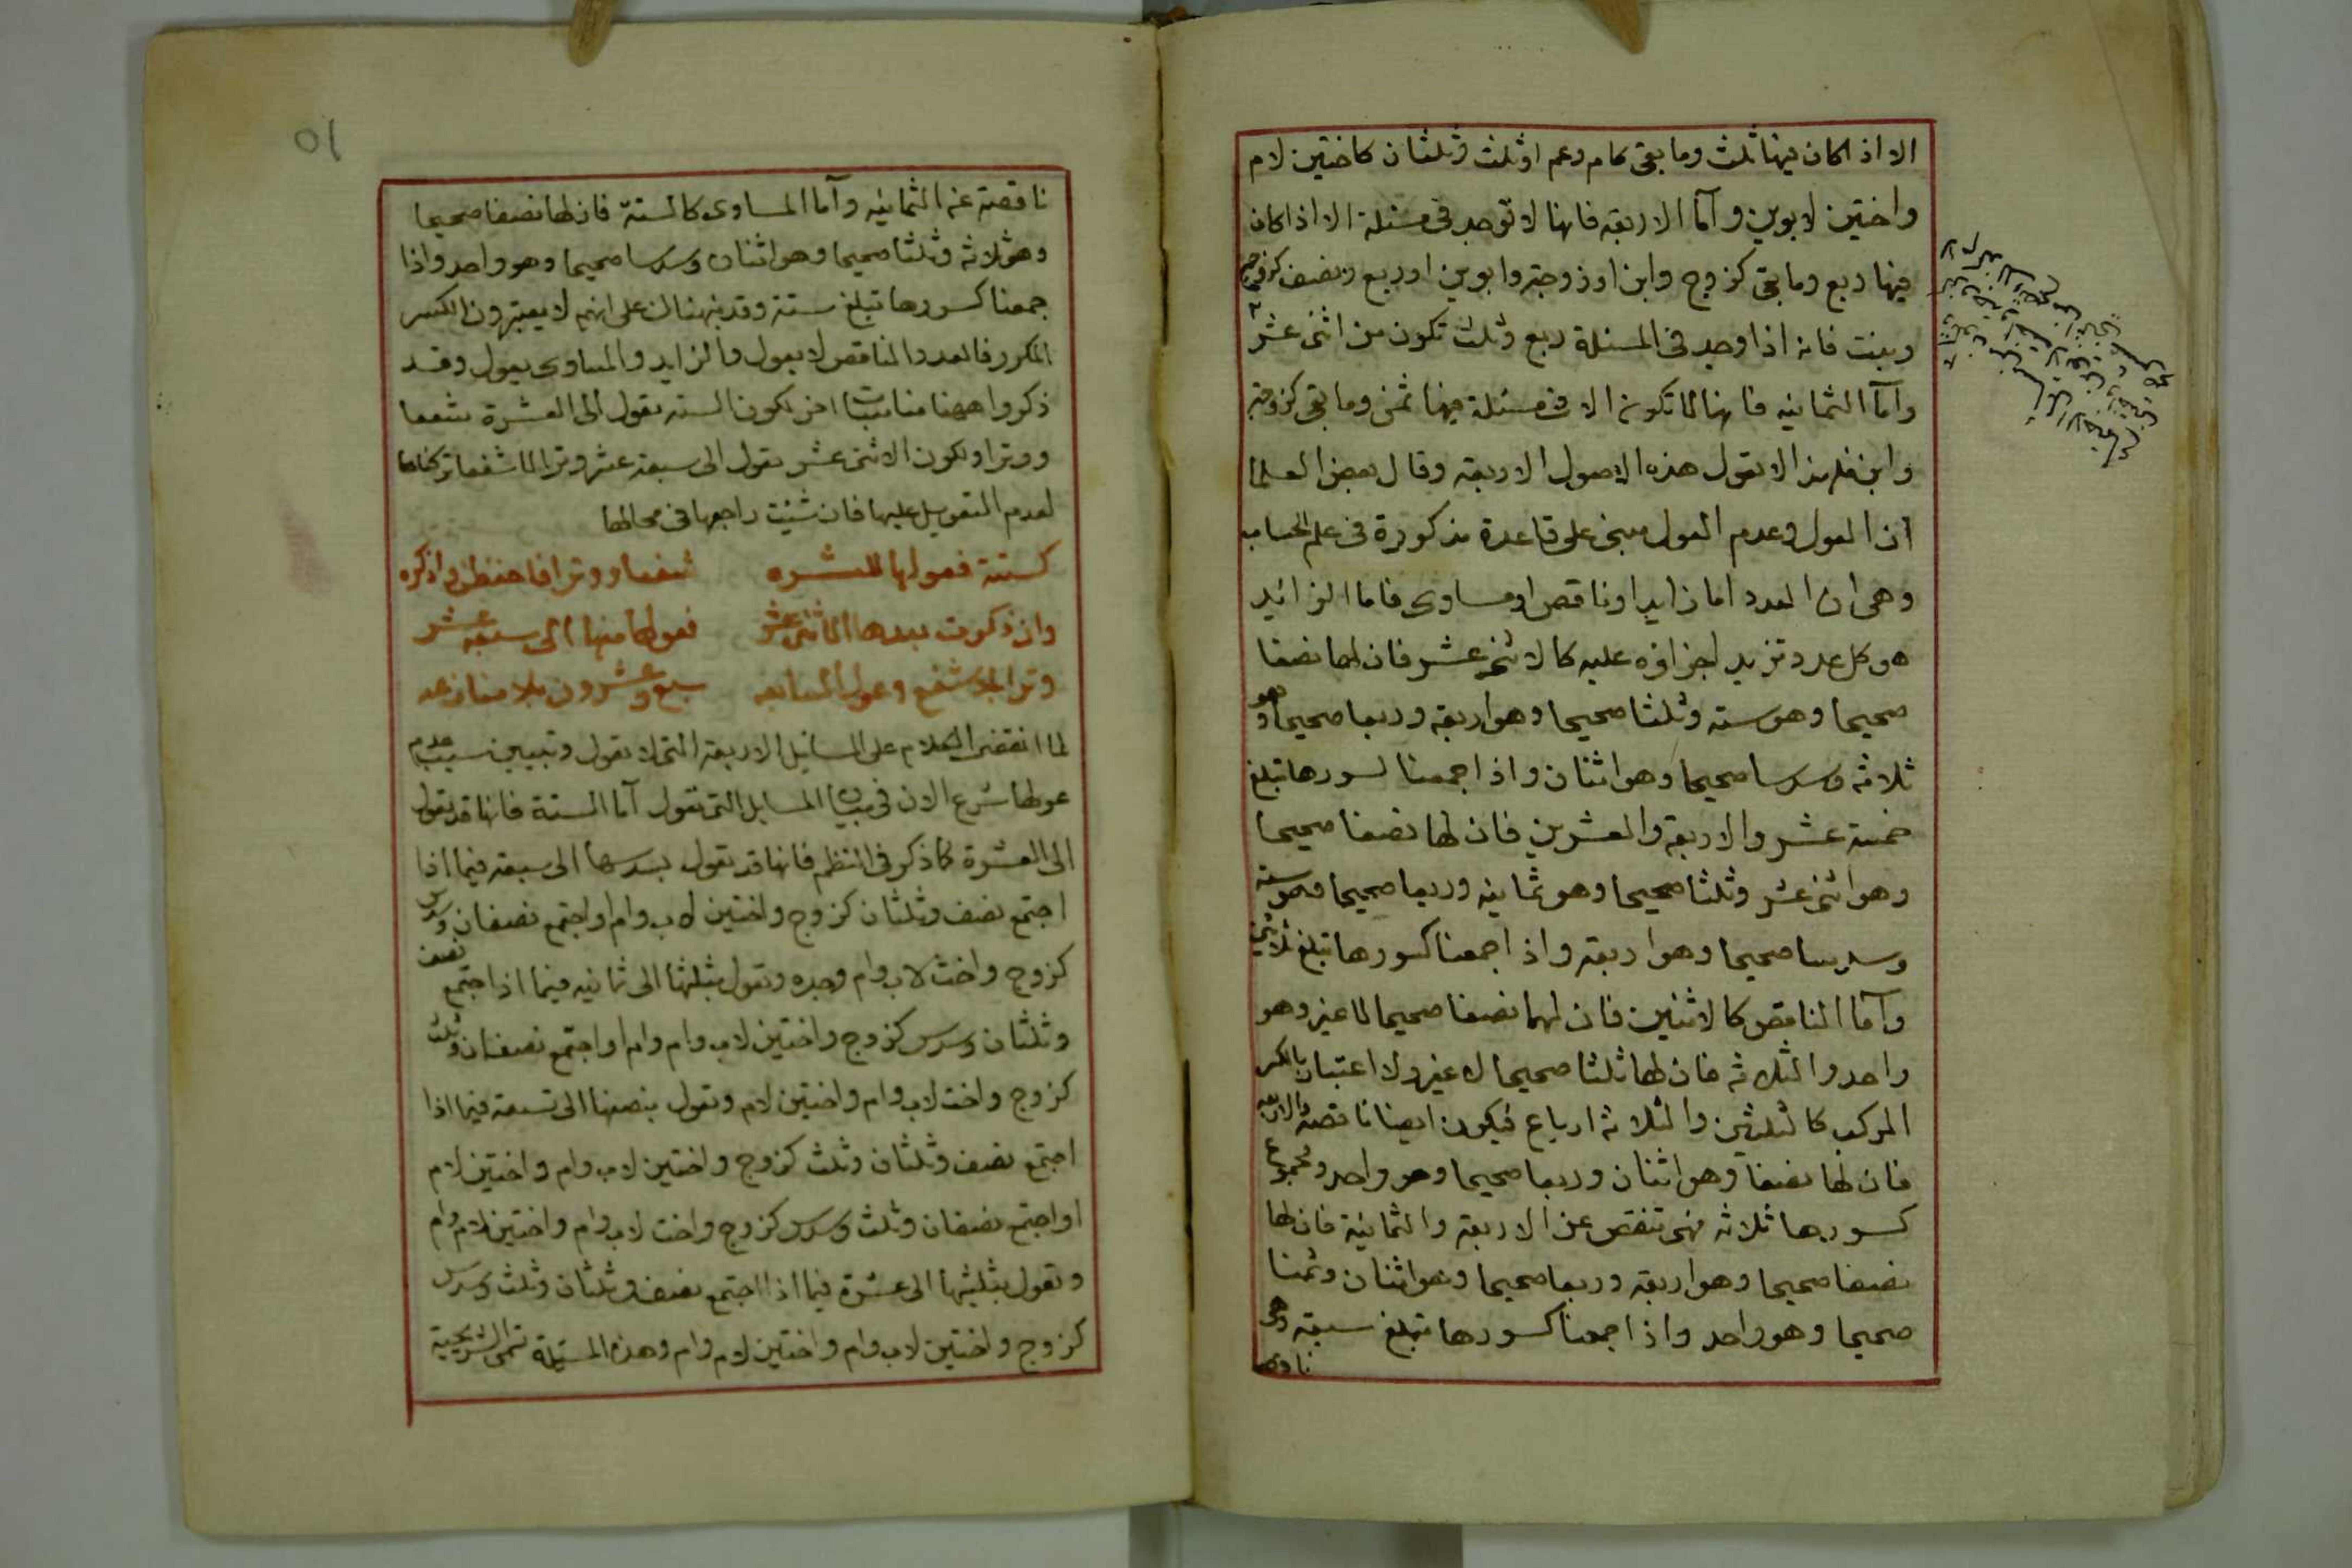 الا اذا كان فيها ثلث وما بقى كام وعم او ثلث وثلثان كاختين لام
واختين لابوين وآما الاربعه فانها لا توجد فى مسئلة الا اذا كان
فيها ربع وما بقى كزوج وابن او زوجة وابوين او ربع ونصف كزوج
وبنت فانه اذا وجد فى المسئلة ربع وثلث تكون من اثنى عشر
وآمآ الثمانيه فانها لا تكون الا فى مسئلة فيها ثمن وما بقى كزوجة
وابن فلهذا لا تعول هذه الاصول الاربعه وقال بعض العلما
ان العول وعدم العول مبنى على قاعدة مذكورة فى علم الحساب
وهى ان العدد اما زايد او ناقص او مساوى فاما الزائد
هو كل عدد تزيد اجزاؤه عليه كالاثنى عشر فان لها نصفا
صحيحا وهو سته وثلثا صحيحا وهو اربعه وربعا صحيحا وهو
ثلاثه وسدسا صحيحا وهو اثنان واذا جمعنا كسورها تبلغ
خمسة عشر والاربعه والعشرين فان لها نصفا صحيحا
وهو اثنى عشر وثلثا صحيحا وهو ثمانيه وربعا صحيحا وهو سته
وسدسا صحيحا وهو اربعه واذا جمعنا كسورها تبلغ ثلاثين
وآما الناقص كالاثنين فان لهما نصفا صحيحا لا غير وهو
واحد والثلاثه فان لها ثلثا صحيحا لا غير ولا اعتبار بالكسر
المركب كالثلثين والثلاثه ارباع فيكون ايضا ناقصه والاربعه
فان لها نصفا وهو اثنان وربعا صحيحا وهو واحد ومجموع
كسورها ثلاثه فهى تنقص عن الاربعه والثمانية فان لها
نصفا صحيحا وهو اربعه وربعا صحيحا وهو اثنان وثمنا
صحيحا وهو واحد واذا جمعنا كسورها تبلغ سبعه وهى
ناقصه
٥١
ناقصة عن الثمانيه وآما المساوى كالستة فان لها نصفا صحيحا
وهو ثلاثه وثلثا صحيحا وهو اثنان وسدسا صحيحا وهو واحد واذا
جمعنا كسورها تبلغ ستة وقد نبهناك على انهم لا يعتبرون الكسر
المكرر فالعدد الناقص لا يعول والزايد والمساوى يعول وقد
ذكروا ههنا مناسبات اخر لكون السته تعول الى العشرة شفعا
ووترا ولكون الاثنى عشر تعول الى سبعة عشر وترا لا شفعا تركناها
لعدم التعويل عليها فان شئت راجعها فى محالها
كستة فعولها للعشره شفعا ووترا فاحفظن واذكره
وان ذكرت بعدها الاثنى عشر فعولها منها الى سبعة عشر
وترا بلا شفع وعول السابعه سبع وعشرون بلا منازعه
لما انقضى الكلام على المسائل الاربعة التى لا تعول وتبيين سبب عدم
عولها شرع الان فى بيان المسايل التى تعول آما الستة فانها قد تعول
الى العشرة كما ذكر فى النظم فانها قد تعول بسدسها الى سبعه فيما اذا
اجتمع نصف وثلثان كزوج واختين لاب وام او اجتمع نصفان وسدس
كزوج واخت لاب وام وجده وتعول بثلثها الى ثمانيه فيما اذا اجتمع نصف
وثلثان وسدس كزوج واختين لاب وام وام او اجتمع نصفان وثلث
كزوج واخت لاب وام واختين لام وتعول بنصفها الى تسعة فيما اذا
اجتمع نصف وثلثان وثلث كزوج واختين لاب وام واختين لام
او اجتمع نصفان وثلث وسدس كزوج واخت لاب وام واختين لام وام
وتعول بثلثيها الى عشرة فيما اذا اجتمع نصف وثلثان وثلث وسدس
كزوج واختين لاب وام واختين لام وام وهذه المسئلة تسمى الشريحية